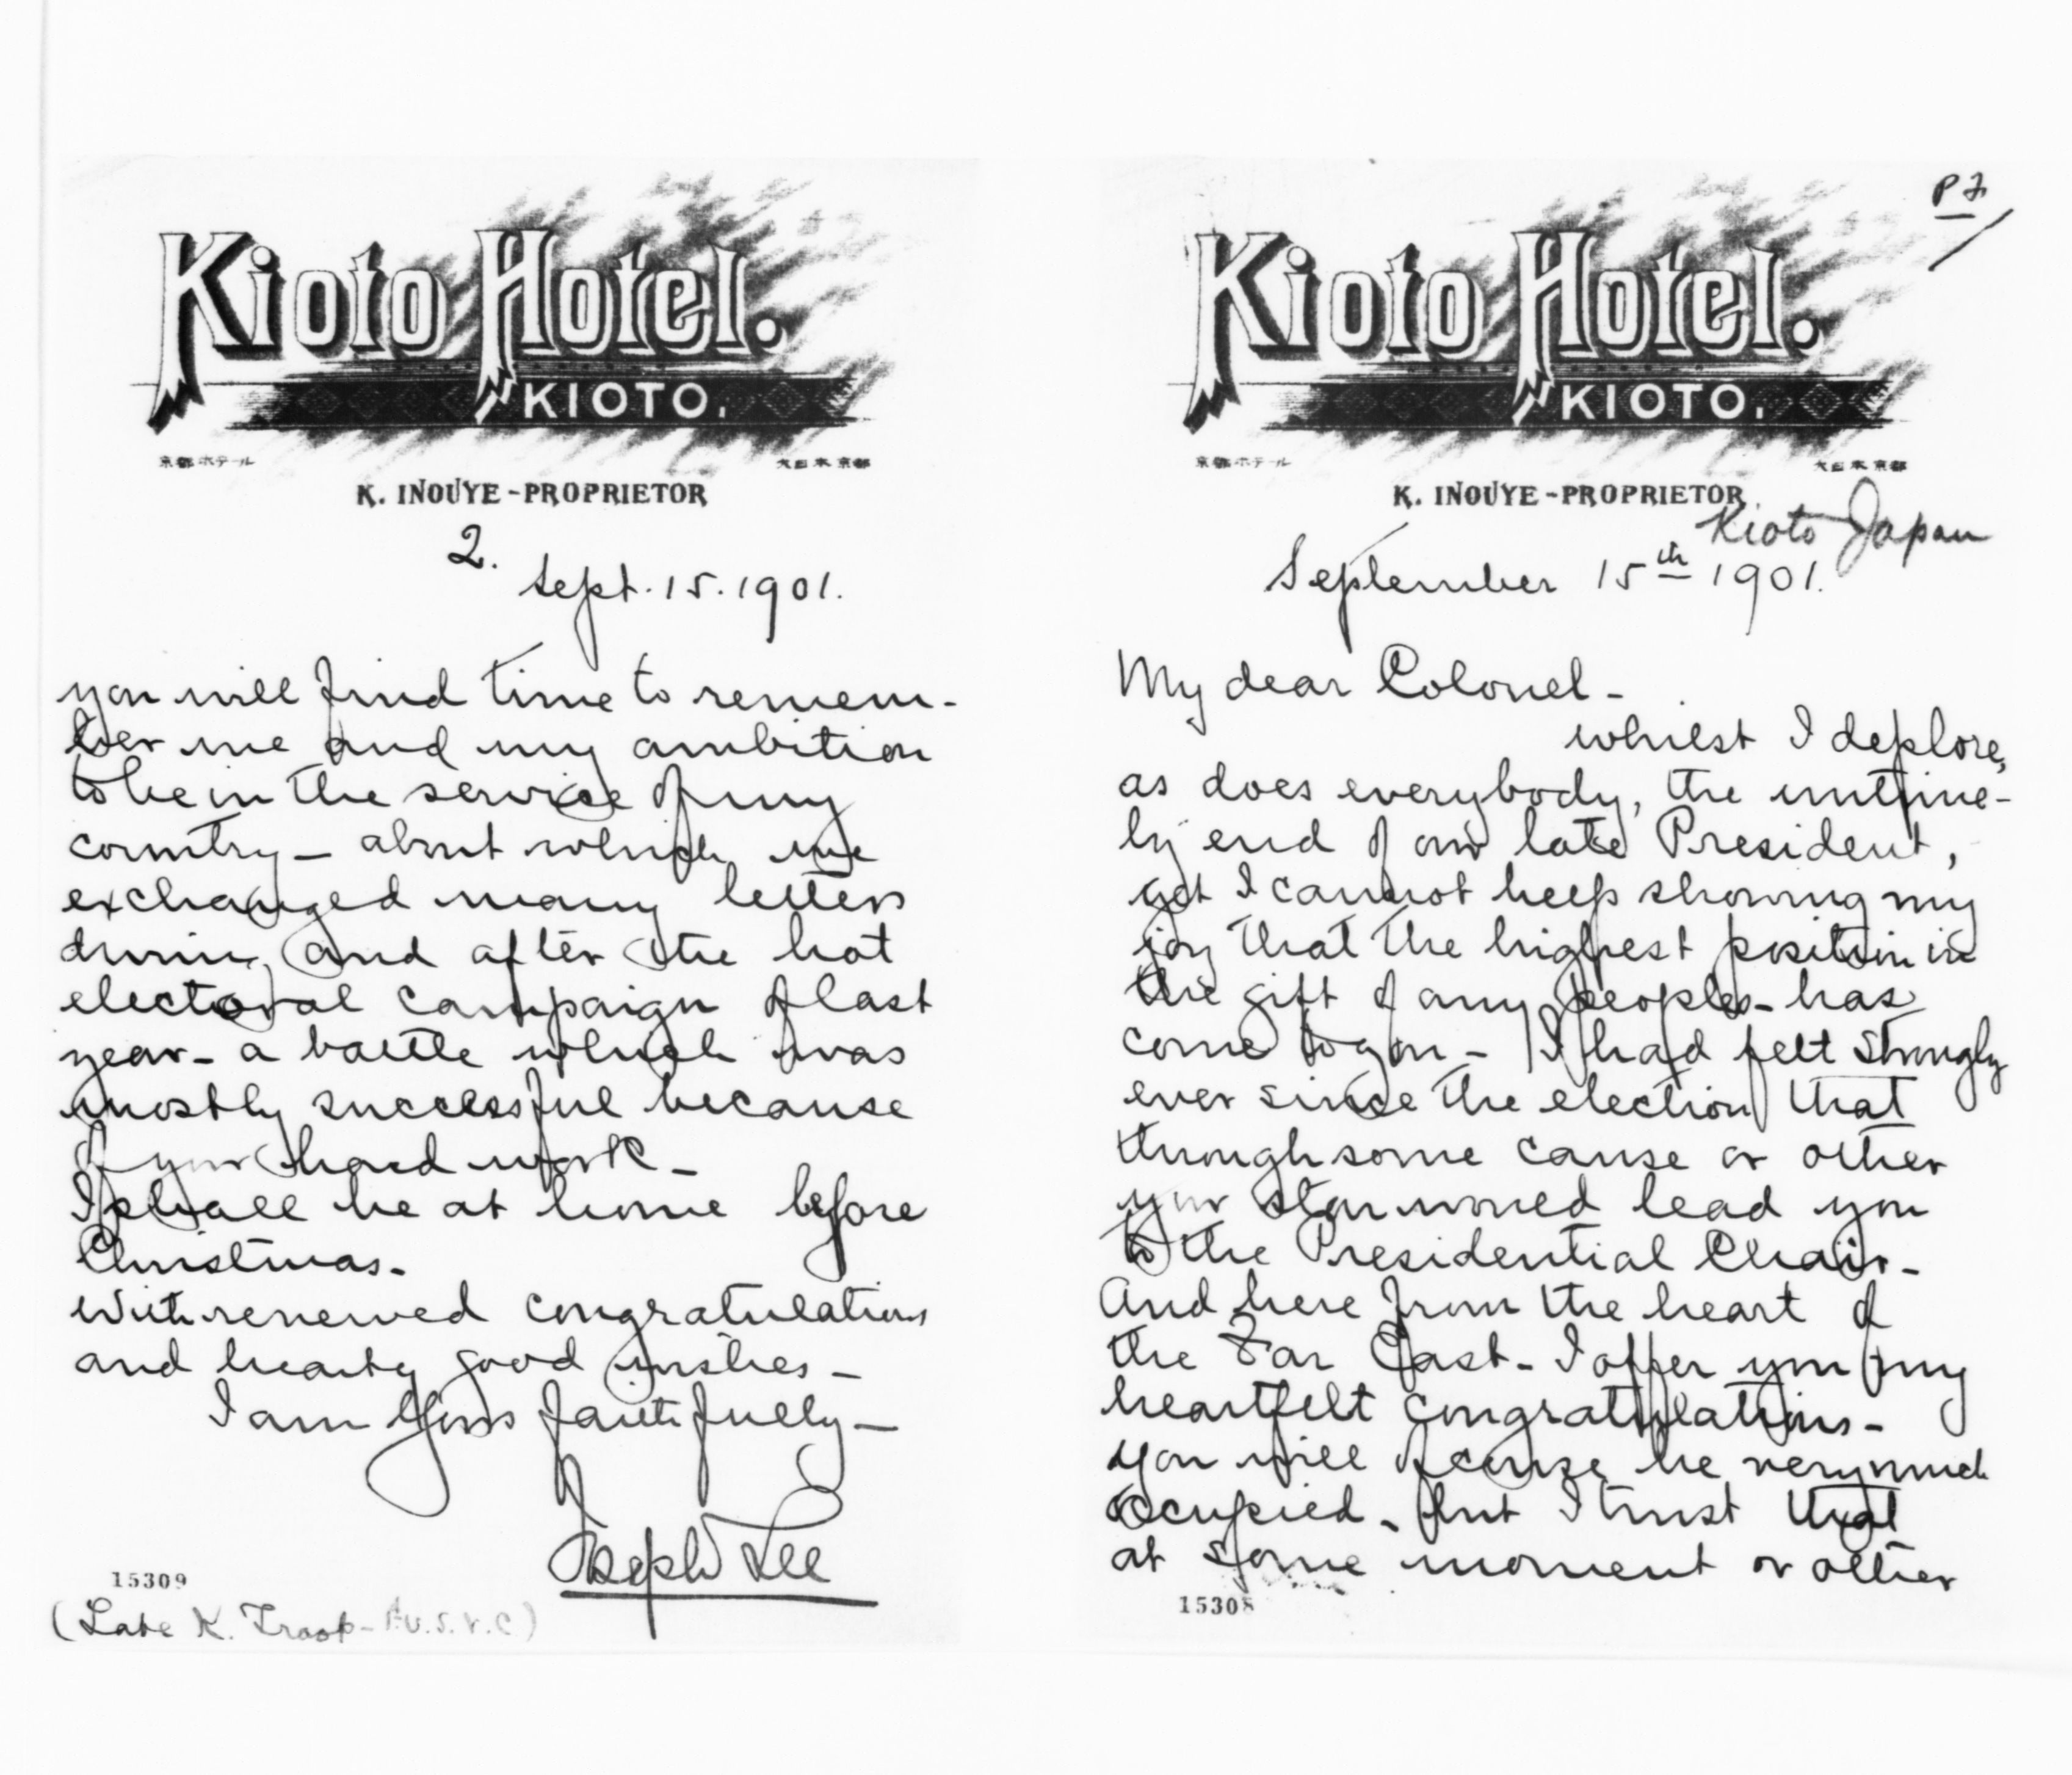 P 2
Kioto Hotel.
KIOTO.
京都ホテール
大日本京都
K. INOUYE-PROPRIETOR
Kioto Japan
September 15th 1901.
My dear Colonel-
whilst I deplore,
as does everybody, the untime-
ly end of our late President,
yet I cannot help showing my
joy that the highest position in
the gift of any peoples- has
come to you- I had felt strongly
ever since the election that
through some cause or other
your star would lead you
to the Presidential Chair-
And here from the heart of
the Far East- I offer you my
heartfelt congratulations-
You will of course be very much
occupied- but I trust that
at some moment or other
15308
Kioto Hotel.
KIOTO.
京都ホテール
大日本京都
K. INOUYE-PROPRIETOR
2.
Sept. 15. 1901.
you will find time to remem-
ber me and my ambition
to be in the service of my
country- about which we
exchanged many letters
during and after the hot
electoral campaign of last
year- a battle which was
mostly successful because
of your hard work-
I shall be at home before
Christmas-
With renewed congratulations
and hearty good wishes-
I am Yours faithfully-
Joseph Lee
15309
(Late K. Troop- U.S.V.C)